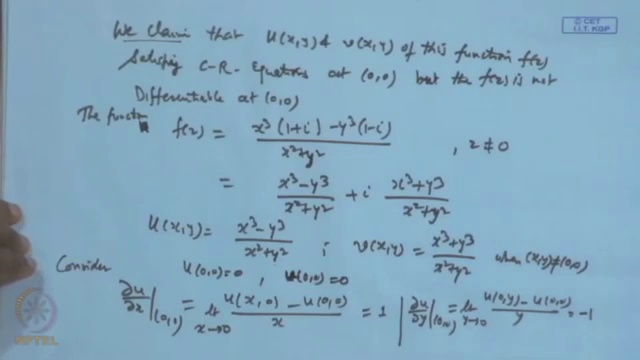 © CET
I.I.T. KGP
We claim that u(x,y) & v(x,y) of this function f(z)
Satisfying C-R- Equations at (0,0) but the f(z) is not
Differentiable at (0,0)
The funct
f(z) = x³(1+i) - y³(1-i) / x²+y² , z ≠ 0
= x³-y³ / x²+y² + i x³+y³ / x²+y²
u(x,y) = x³-y³ / x²+y² ; v(x,y) = x³+y³ / x²+y² when (x,y)≠(0,0)
u(0,0)=0 , v(0,0)=0
Consider
∂u/∂x |(0,0) = lt x→0 u(x,0) - u(0,0) / x = 1 | ∂u/∂y |(0,0) = lt y→0 u(0,y) - u(0,0) / y = -1
NPTEL